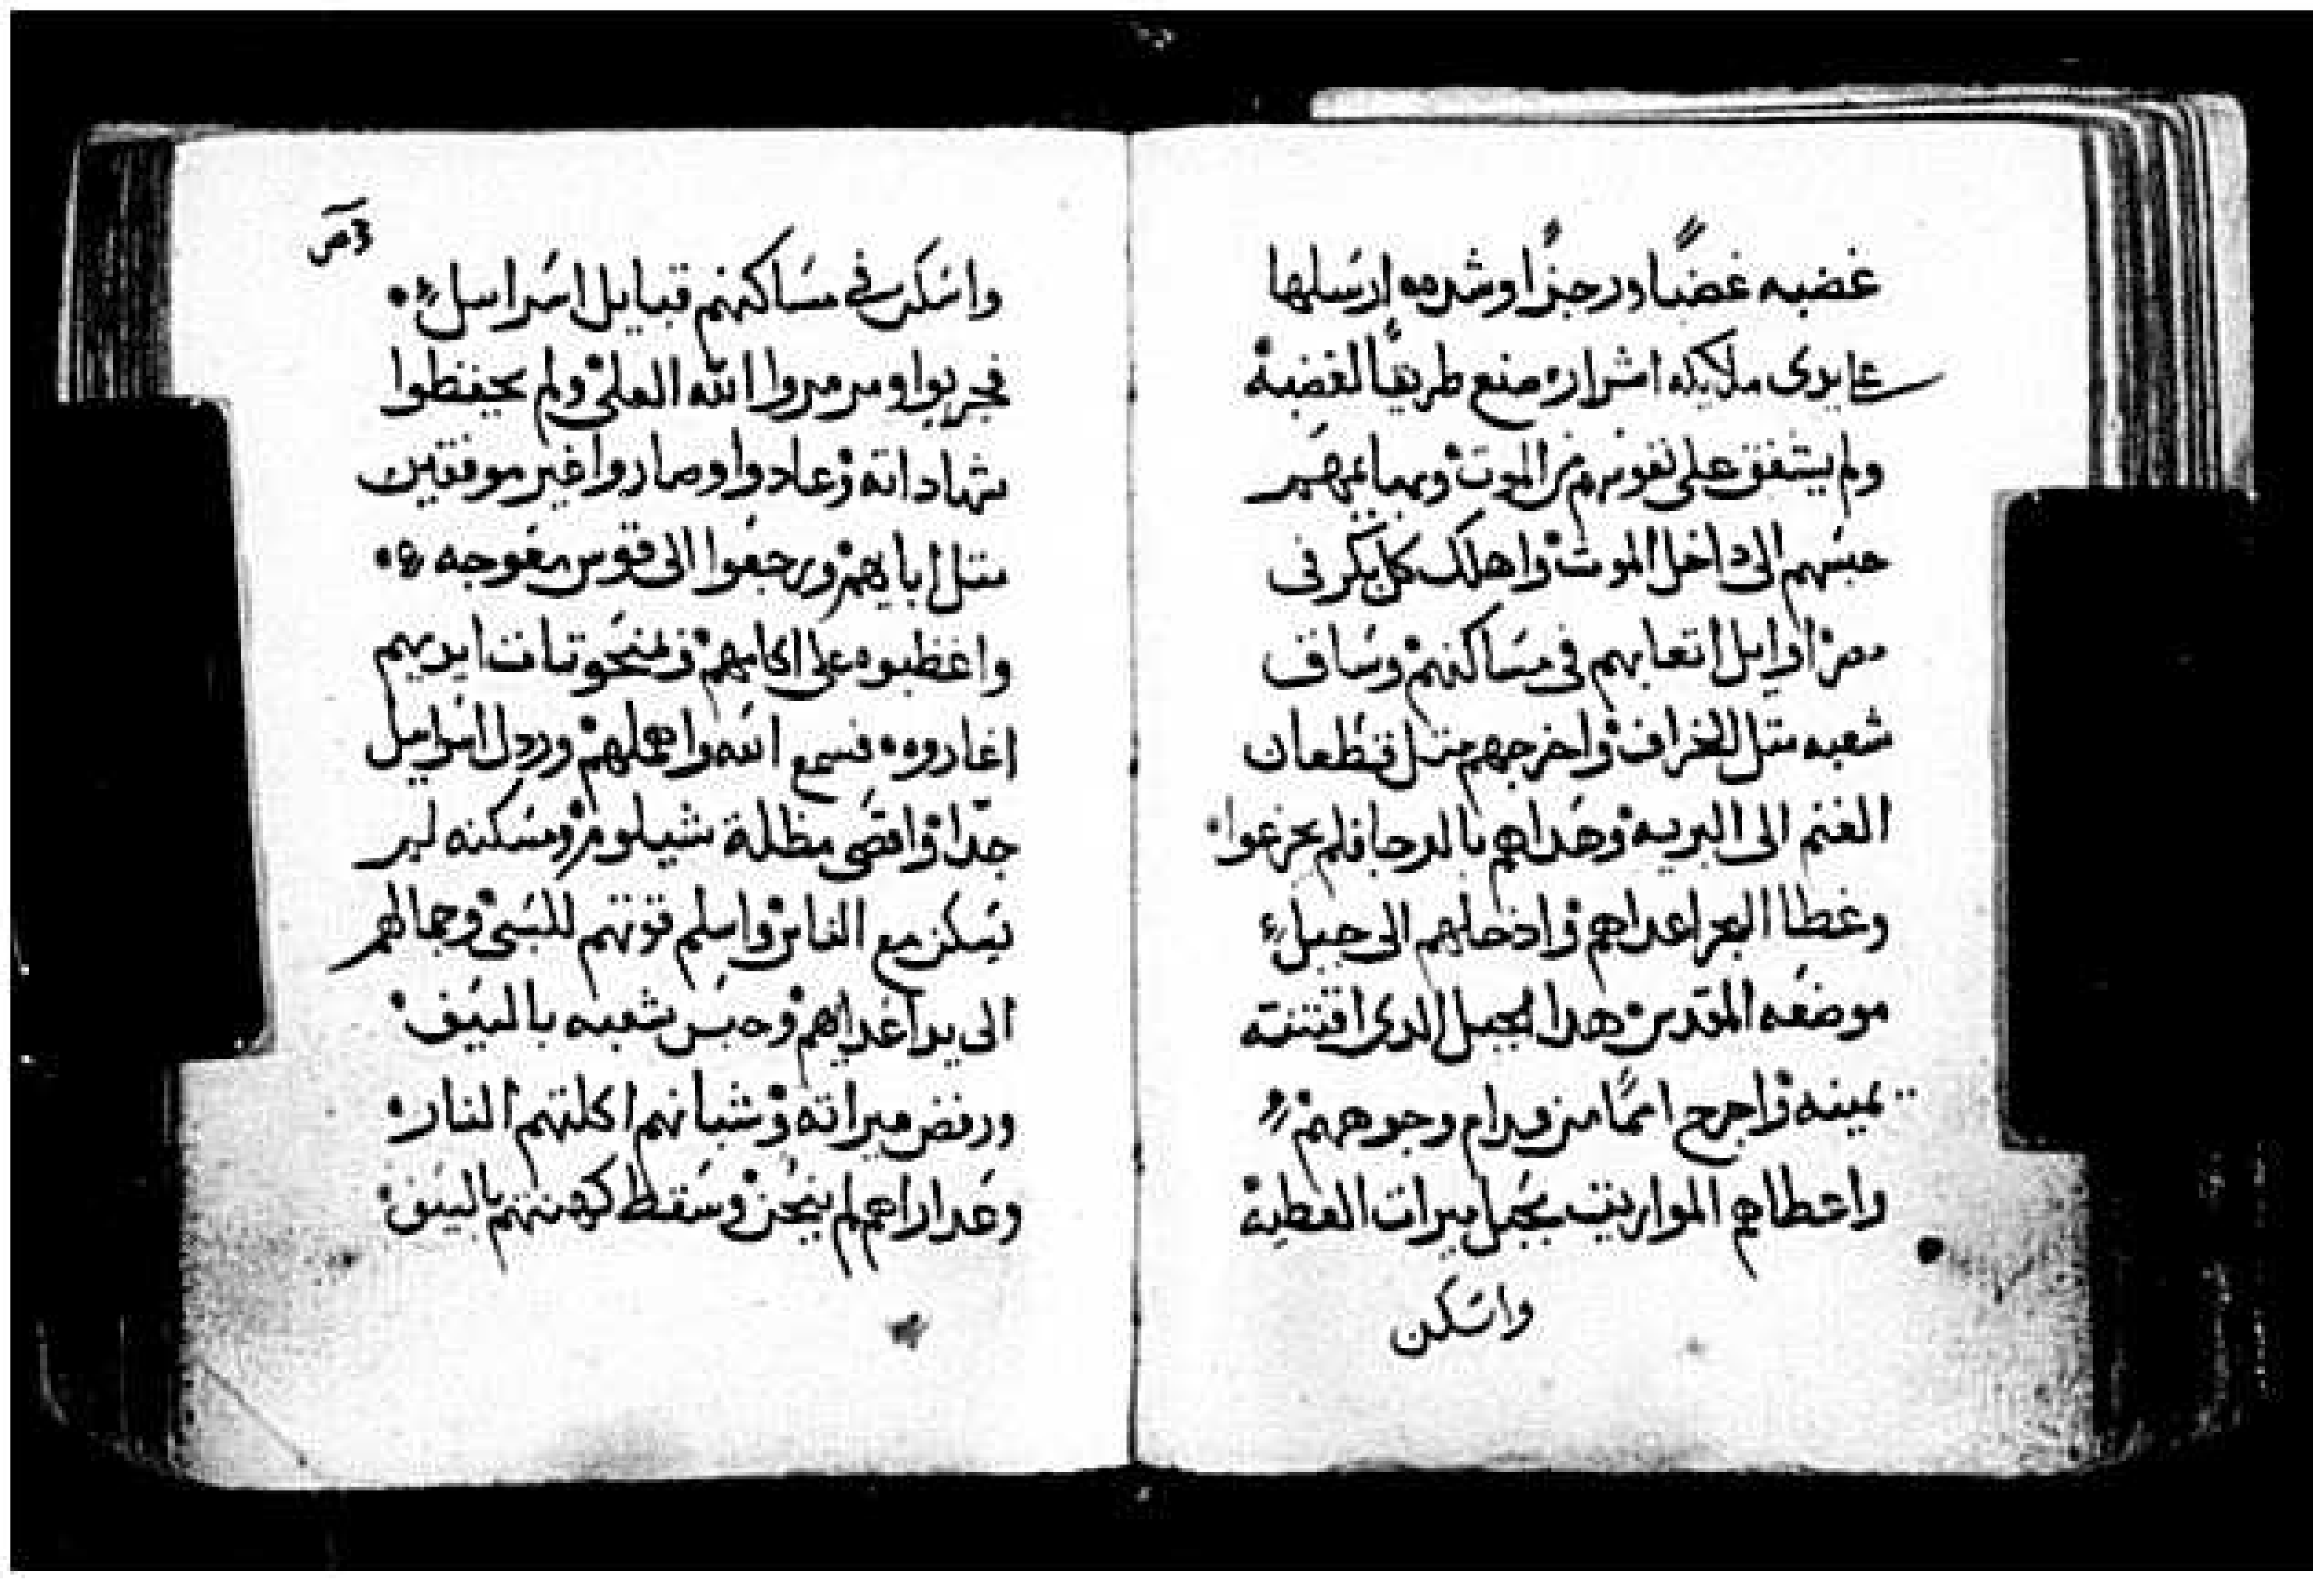 غضبه غضبًا ورجزًا وشده ارسلها
على ايدى ملايكه اشرار صنع طريقًا لغضبه
ولم يشفق على نفوسهم من الموت وبهايمهم
حبسهم الى داخل الموت واهلك كل بكر فى
مصر اوايل اتعابهم فى مساكنهم وساف
شعبه متل الخراف واخرجهم متل قطعان
الغنم الى البريه وهداهم بالرجا فلم يجزعوا
وغطا البحر اعداهم وادخلهم الى جبل
موضعه المقدس هدا الجبل الدى اقتنته
يمينه واخرج اممًا من قدام وجوههم
واعطاهم المواريت بحبل ميرات العطيه
واسكن
واسكن فى مساكنهم قبايل اسراييل
فجربوا ومرمروا الله العلى ولم يحفظوا
شهاداته وعادوا وصاروا غير موفقين
متل ابايهم ورجعوا الى قوس معوجه
واغظبوه على اكامهم وبمنحوتات ايديهم
اغاروه فسمع الله واهملهم وردل اسراييل
جدا واقصى مظلة شيلوم ومسكنه ليس
يسكن مع الناس واسلم قوتهم للسبى وجمالهم
الى يد اعدايهم وحبس شعبه بالسيف
ورفض ميراته وشبانهم اكلتهم النار
وعداراهم لم ينحن وسقط كهنتهم بالسيف